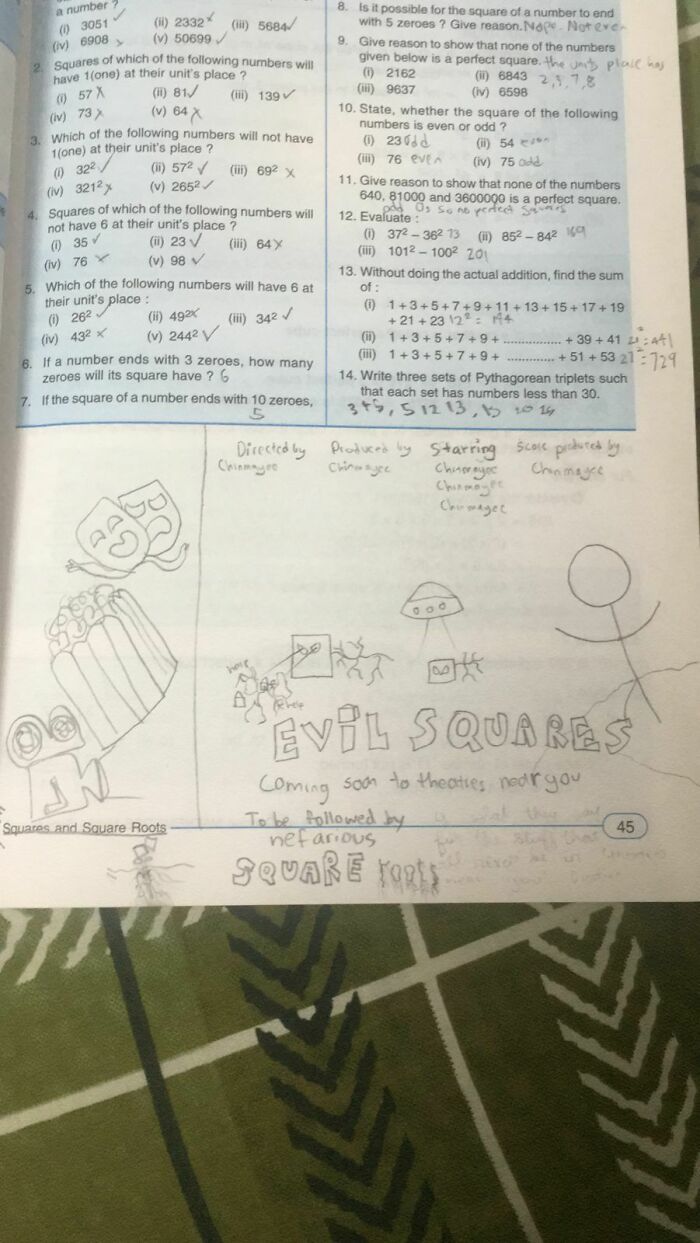 a number ?
(i) 3051 ✓ (ii) 2332 x (iii) 5684 ✓
(iv) 6908 x (v) 50699 ✓
2. Squares of which of the following numbers will
have 1(one) at their unit's place ?
(i) 57 x (ii) 81 ✓ (iii) 139 ✓
(iv) 73 x (v) 64 x
3. Which of the following numbers will not have
1(one) at their unit's place ?
(i) 32² ✓ (ii) 57² ✓ (iii) 69² x
(iv) 321² x (v) 265² ✓
4. Squares of which of the following numbers will
not have 6 at their unit's place ?
(i) 35 ✓ (ii) 23 ✓ (iii) 64 x
(iv) 76 x (v) 98 ✓
5. Which of the following numbers will have 6 at
their unit's place :
(i) 26² ✓ (ii) 49² x (iii) 34² ✓
(iv) 43² x (v) 244² ✓
6. If a number ends with 3 zeroes, how many
zeroes will its square have ? 6
7. If the square of a number ends with 10 zeroes,
5
8. Is it possible for the square of a number to end
with 5 zeroes ? Give reason. Nope. Not even
9. Give reason to show that none of the numbers
given below is a perfect square. the units place has
(i) 2162 (ii) 6843 2, 3, 7, 8
(iii) 9637 (iv) 6598
10. State, whether the square of the following
numbers is even or odd ?
(i) 23 odd (ii) 54 even
(iii) 76 even (iv) 75 odd
11. Give reason to show that none of the numbers
640, 81000 and 3600000 is a perfect square.
odd 0s so no perfect squares
12. Evaluate :
(i) 37² – 36² 73 (ii) 85² – 84² 169
(iii) 101² – 100² 201
13. Without doing the actual addition, find the sum
of :
(i) 1 + 3 + 5 + 7 + 9 + 11 + 13 + 15 + 17 + 19
+ 21 + 23 12² = 144
(ii) 1 + 3 + 5 + 7 + 9 + ................ + 39 + 41 21² = 441
(iii) 1 + 3 + 5 + 7 + 9 + ............. + 51 + 53 27² = 729
14. Write three sets of Pythagorean triplets such
that each set has numbers less than 30.
3 4 5, 5 12 13,
Directed by Produced by Starring Score produced by
Chinmayee Chinmayee Chinmayee Chinmayee
Chinmayee
Chinmayee
help
EVIL SQUARES
Coming soon to theatres near you
To be followed by
Squares and Square Roots 45
nefarious
SQUARE roots